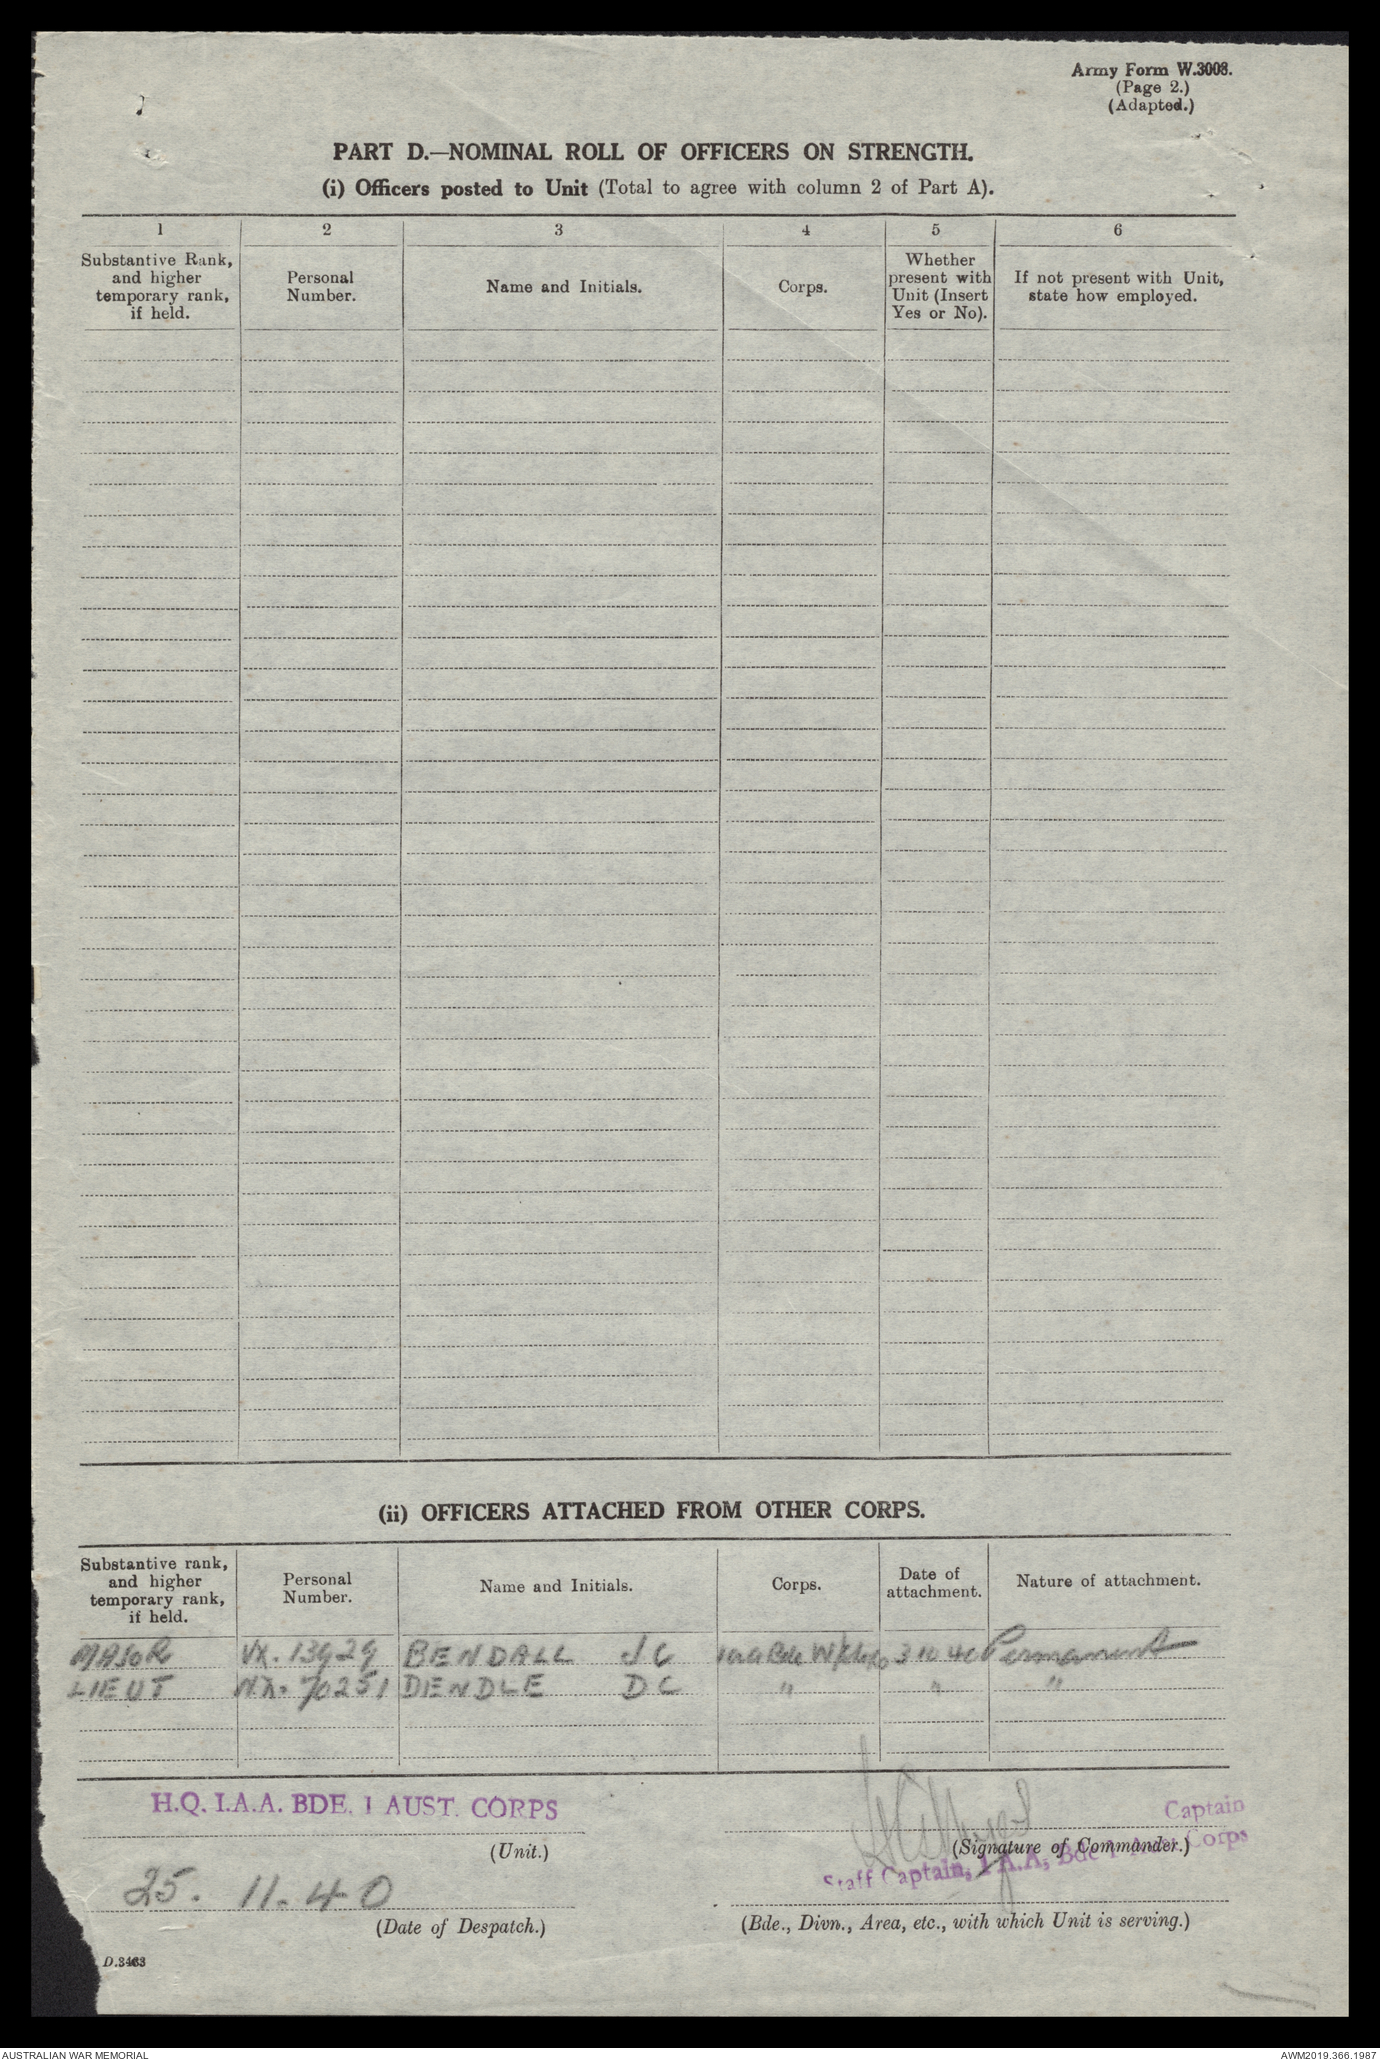 Army Form W.3008.
(Page 2.)
(Adapted.)
PART D.—NOMINAL ROLL OF OFFICERS ON STRENGTH.
(i) Officers posted to Unit (Total to agree with column 2 of Part A).
1 2 3 4 5 6
Substantive Rank, and higher temporary rank, if held.
Personal Number.
Name and Initials.
Corps.
Whether present with Unit (Insert Yes or No).
If not present with Unit, state how employed.
(ii) OFFICERS ATTACHED FROM OTHER CORPS.
Substantive rank, and higher temporary rank, if held.
Personal Number.
Name and Initials.
Corps.
Date of attachment.
Nature of attachment.
MAJOR VX. 13929 BENDALL J C Bde 3 10 40 Permanent
LIEUT NX. 70251 DENDLE D C " " "
H.Q. I.A.A. BDE. 1 AUST. CORPS
(Unit.)
Captain
(Signature of Commander.)
Staff Captain, 1 A.A, Bde 1 Aust Corps
25. 11. 40
(Date of Despatch.)
(Bde., Divn., Area, etc., with which Unit is serving.)
D.3463
AUSTRALIAN WAR MEMORIAL
AWM2019.366.1987